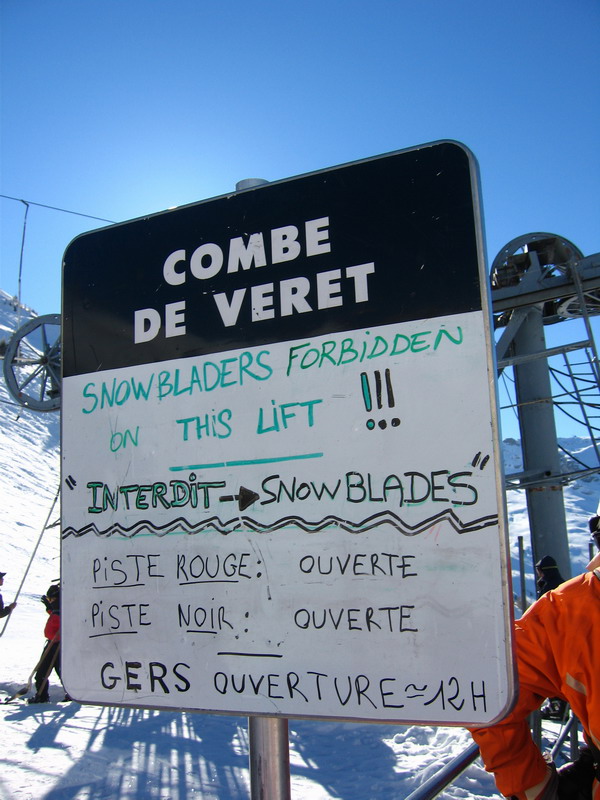 COMBE
DE VERET
SNOWBLADERS FORBIDDEN
ON THIS LIFT !!!
"INTERDIT → SNOWBLADES"
PISTE ROUGE: OUVERTE
PISTE NOIR: OUVERTE
GERS OUVERTURE ≃ 12H